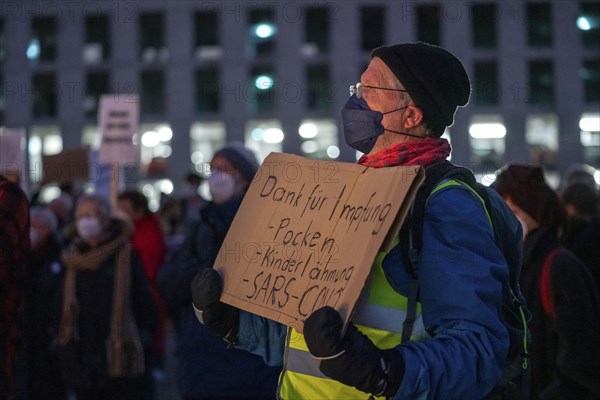 Dank für Impfung
- Pocken
- Kinderlähmung
- SARS-COV